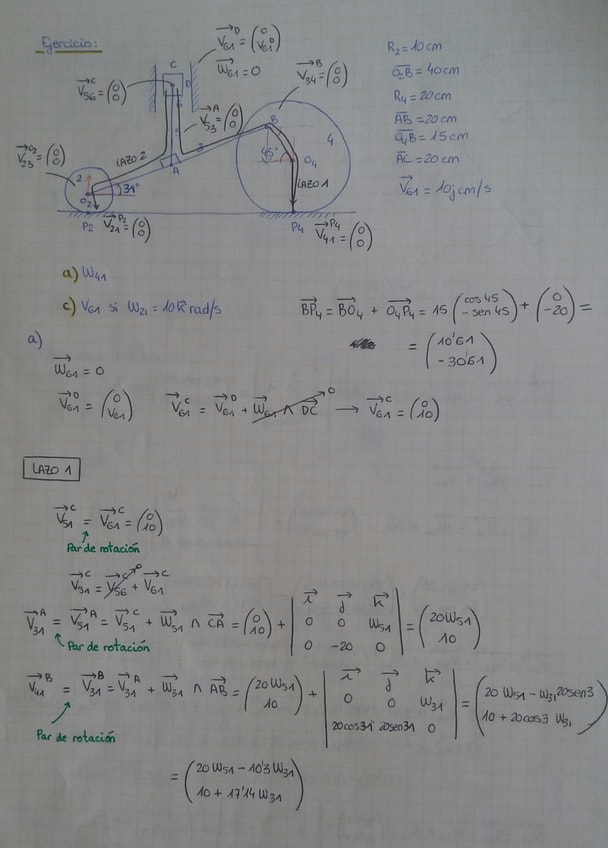 Ejercicio:
V61^D = (0 V61^D)
W61 = 0
V56^C = (0 0)
V53^A = (0 0)
V34^B = (0 0)
V23^O2 = (0 0)
V21^P2 = (0 0)
V41^P4 = (0 0)
C
D
6
5
A
3
B
4
45°
O4
LAZO 1
LAZO 2
2
O2
31°
P2
P4
R2 = 10 cm
O2B = 40 cm
R4 = 20 cm
AB = 20 cm
O4B = 15 cm
AC = 20 cm
V61 = 10 j cm/s
a) W41
c) V61 si W21 = 10 k rad/s
BP4 = BO4 + O4P4 = 15 (cos 45 -sen 45) + (0 -20) =
= (10'61 -30'61)
a)
W61 = 0
V61^D = (0 V61) V61^C = V61^D + W61 ∧ DC → 0 → V61^C = (0 10)
LAZO 1
V51^C = V61^C = (0 10)
Par de rotación
V51^C = V56^C → 0 + V61^C
V31^A = V51^A = V51^C + W51 ∧ CA = (0 10) + | i j k 0 0 W51 0 -20 0 | = (20W51 10)
Par de rotación
V41^B = V31^B = V31^A + W31 ∧ AB = (20W51 10) + | i j k 0 0 W31 20cos31 20sen31 0 | = (20 W51 - W31 20sen3 10 + 20cos3 W31)
Par de rotación
= (20 W51 - 10'3 W31 10 + 17'14 W31)